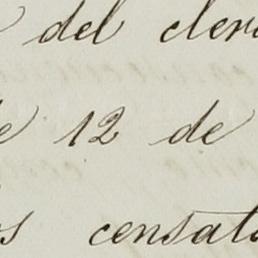 del cler
de 12 de
os censat